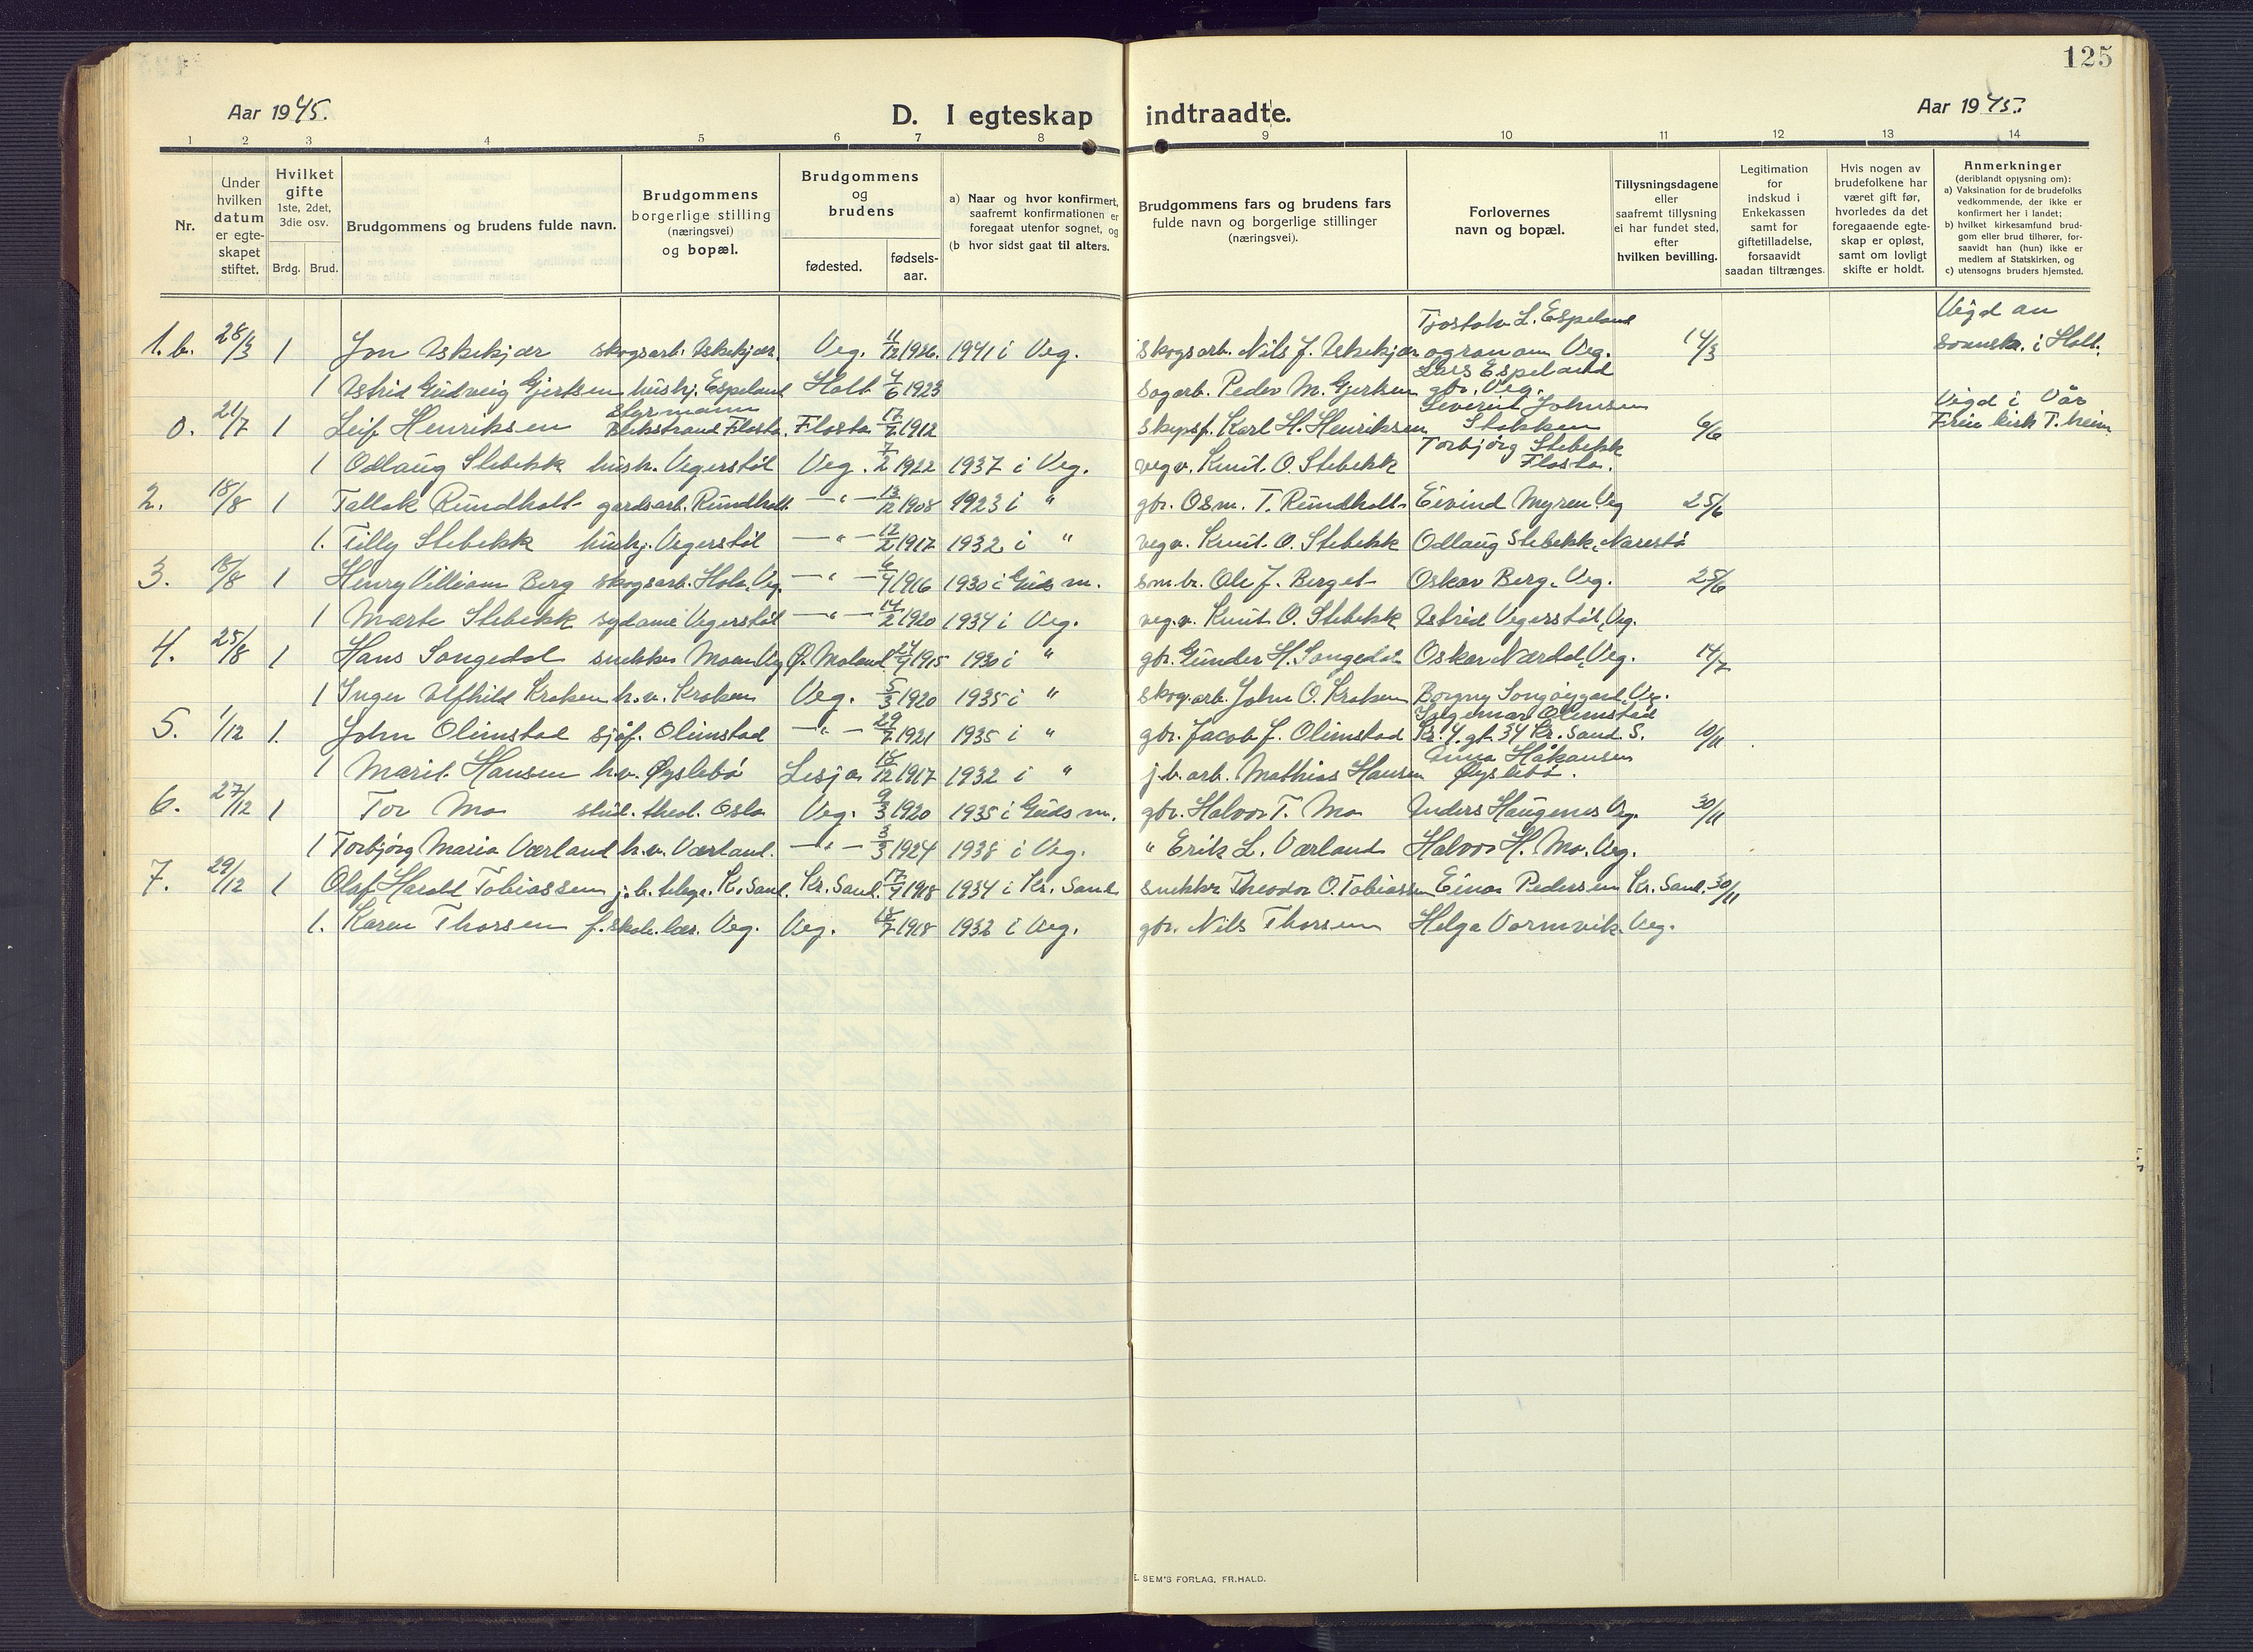 125
Aar 1945.
D. I egteskap indtraadte.
Aar 1945.
1 2 3 4 5 6 7 8 9 10 11 12 13 14
Nr.
Under hvilken datum er egte-skapet stiftet.
Hvilket gifte
1ste, 2det, 3die osv.
Brdg. Brud.
Brudgommens og brudens fulde navn.
Brudgommens borgerlige stilling (næringsvei) og bopæl.
Brudgommens og brudens
fødested. fødsels-aar.
a) Naar og hvor konfirmert, saafremt konfirmationen er foregaat utenfor sognet, og
(b hvor sidst gaat til alters.
Brudgommens fars og brudens fars fulde navn og borgerlige stillinger (næringsvei).
Forlovernes navn og bopæl.
Tillysningsdagene eller saafremt tillysning ei har fundet sted, efter hvilken bevilling.
Legitimation for indskud i Enkekassen samt for giftetilladelse, forsaavidt saadan tiltrænges.
Hvis nogen av brudefolkene har været gift før, hvorledes da det foregaaende egte-skap er opløst, samt om lovligt skifte er holdt.
Anmerkninger
(deriblandt opjysning om):
a) Vaksination for de brudefolks vedkommende, der ikke er konfirmert her i landet;
b) hvilket kirkesamfund brud-gom eller brud tilhører, for-saavidt han (hun) ikke er medlem af Statskirken, og
c) utensogns bruders hjemsted.
1.b. 28/3 1 Jon Askekjær skogsarb. Askekjær. Veg. 11/12 1926. 1941 i Veg. Skogsarb. Nils J. Askekjær Tjostolv L. Espeland og ran om Veg. 14/3 Vigd av soknepr. i Holt.
1 Astrid Gudveig Gjertsen hushj. Espeland Holt 4/6 1923 sagarb. Peder M. Gjertsen Lars Espeland gbr. Veg.
0. 21/7 1 Leif Henriksen Styrmann Bekstrand Flosta. Flosta 17/2 1912 skipsf. Karl H. Henriksen Severin Johnsen Stokken 6/6 Vigd i Vår Freie kirk T.heim
1 Odlaug Stebekk hush. Vegerstøl Veg. 7/2 1922 1937 i Veg. vegv. Knut O. Stebekk Torbjørg Stebekk Flosta.
2. 18/8 1 Tallak Rundholt gardsarb. Rundholt — " — 13/12 1908 1923 i " gbr. Osm. T. Rundholt Eivind Myren Veg 25/6
1. Tilly Stebekk hushj. Vegerstøl — " — 12/2 1917 1932 i " vegv. Knut O. Stebekk Odlaug Stebekk, Narestø
3. 18/8 1 Henry Villiam Berg skogsarb. Hola, Veg. — " — 6/4 1916 1930 i Guds m. Ole J. Berget Oskar Berg, Veg. 25/6
1 Marte Stebekk sydame Vegerstøl — " — 14/2 1920 1934 i Veg. vegv. Knut O. Stebekk Astrid Vegerstøl, Veg.
4. 25/8 1 Hans Songedal snekker Moen Veg Ø. Moland 24/9 1915 1930 i " gbr. Gunder H. Songedal Oskar Nærdal, Veg. 14/7
1 Inger Alfhild Kroken h.v. Kroken Veg. 5/3 1920 1935 i " skog.arb. John O. Kroken Borgny Songøygard, Veg.
5. 1/12 1. John Olimstad sjøf. Olimstad — " — 29/7 1921 1935 i " gbr. Jacob J. Olimstad Ingemar Olimstad Kr. 4. gt. 34 Kr. Sand S. 10/11
1 Marit Hansen h.v. Øyslebø Lesja 18/12 1917 1932 i " j.b. arb. Mathias Hansen Anna Håkansen Øyslebø.
6. 27/12 1 Tor Mo stud. theol. Oslo Veg. 9/3 1920 1935 i Guds m. gbr. Halvor T. Mo Anders Haugenes Veg. 30/11
1 Torbjørg Maria Værland h.v. Værland. — " — 3/3 1924 1938 i Veg. " Erik L. Værland Halvor H. Mo. Veg.
7. 29/12 1 Olaf Harald Tobiassen j.b. telegr. K. Sand. Kr. Sand. 17/9 1918 1934 i Kr. Sand snekker Theodor O. Tobiassen Einar Pedersen Kr. Sand. 30/11
1. Karen Thorsen f. skole lær. Veg. Veg. 18/7 1918 1932 i Veg. gbr. Nils Thorsen Helga Vormvik. Veg.
E. SEM'S FORLAG, FR.HALD.